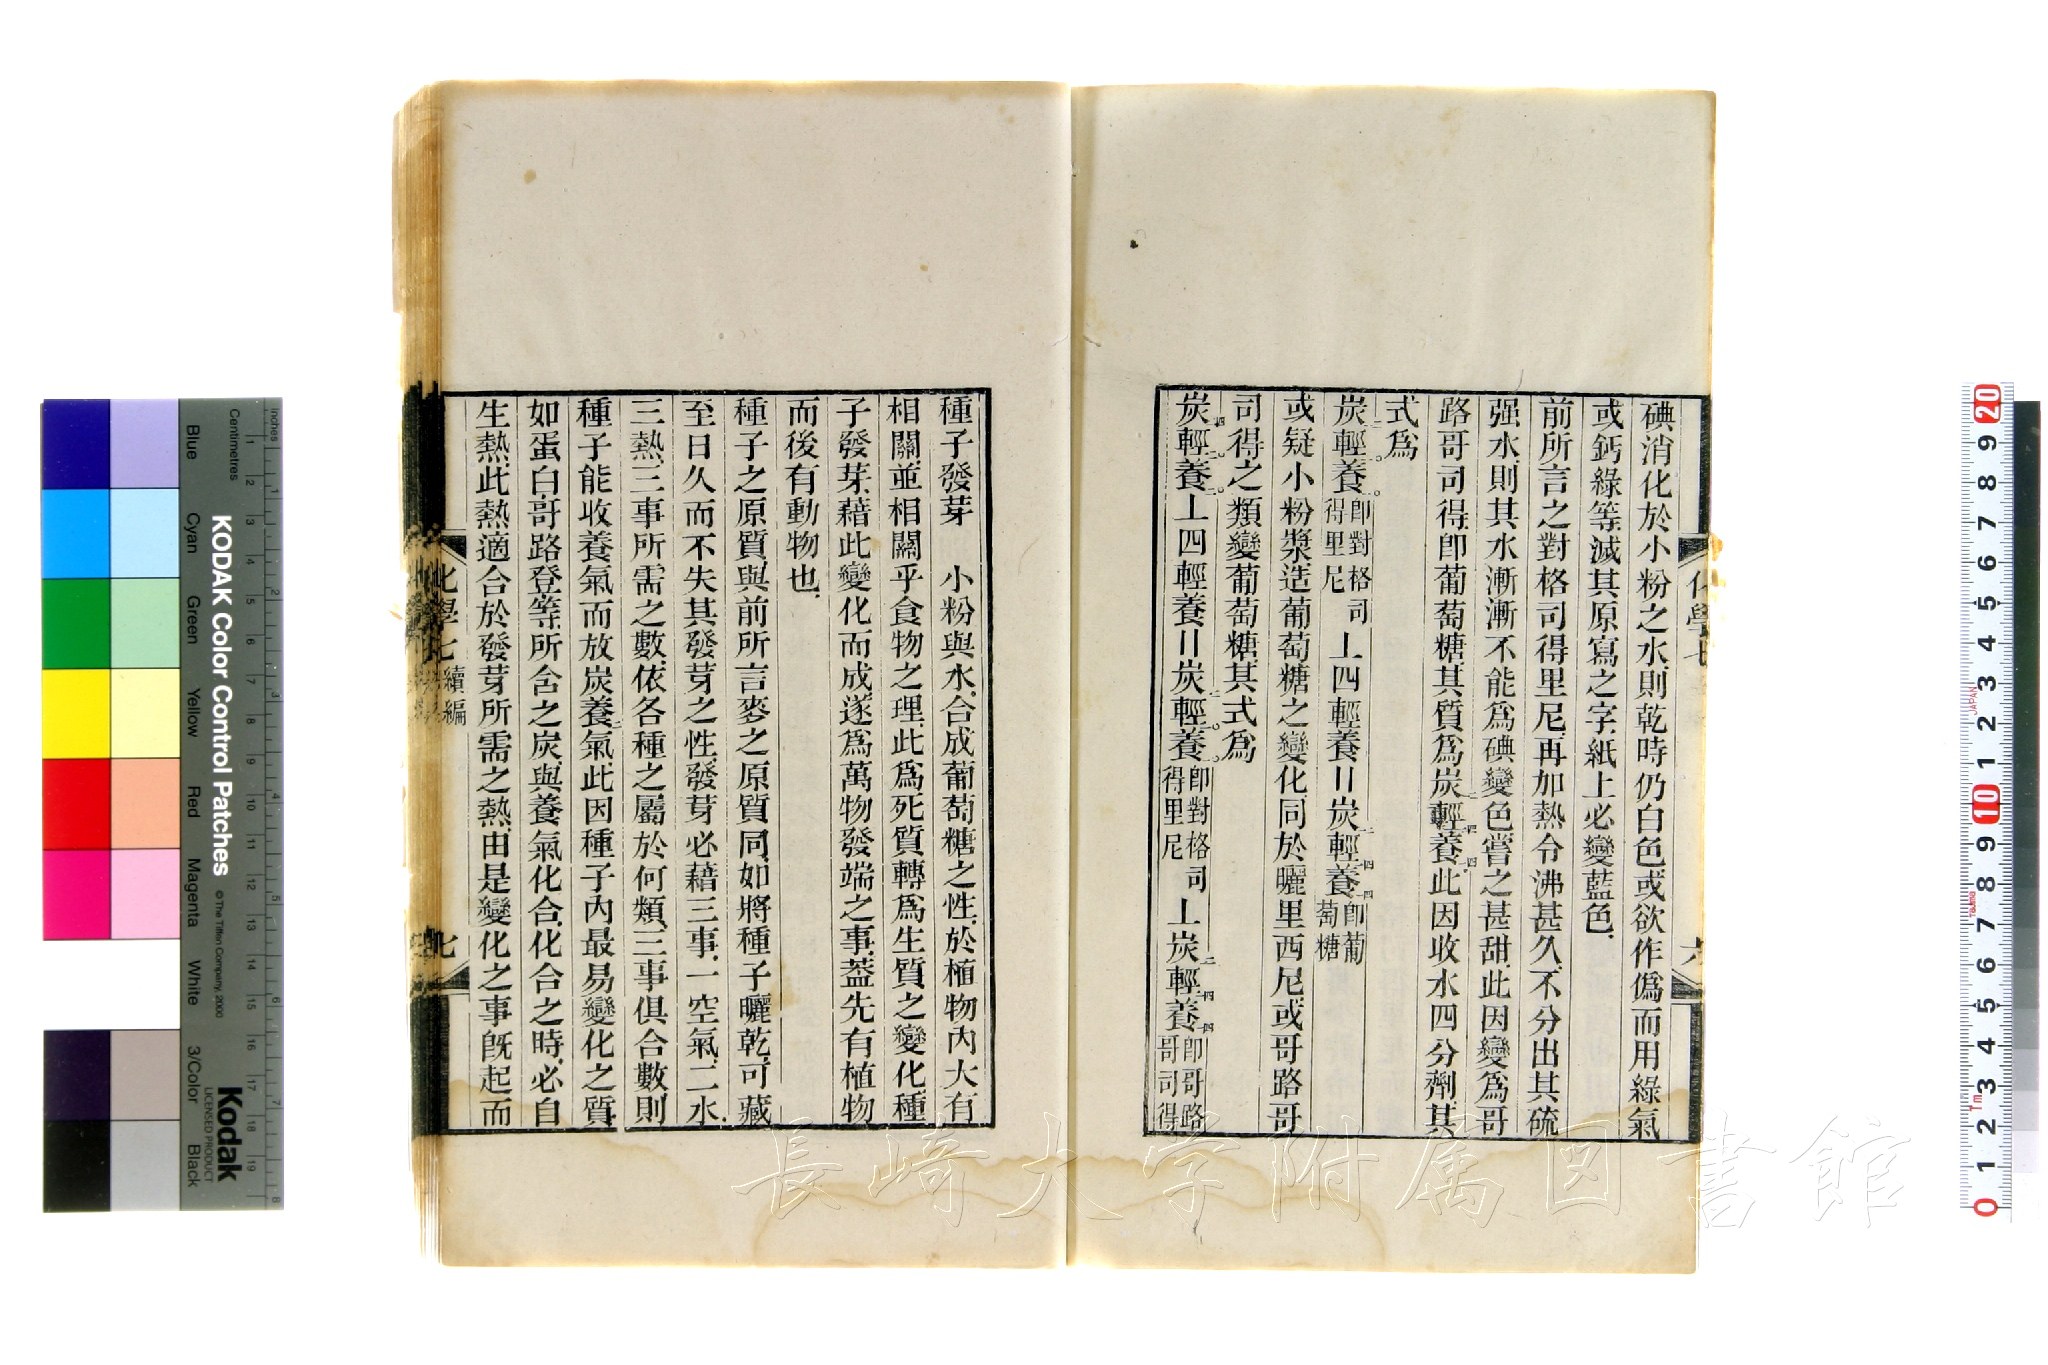 碘消化於小粉之水則乾時仍白色或欲作僞而用綠氣
或鈣綠等滅其原寫之字紙上必變藍色
前所言之對格司得里尼再加熱令沸甚久不分出其硫
强水則其水漸漸不能爲碘變色嘗之甚甜此因變爲哥
路哥司得卽葡萄糖其質爲炭輕養此因收水四分劑其
式爲
炭輕養卽對格司得里尼⊥四輕養〢炭輕養卽葡萄糖
或疑小粉漿造葡萄糖之變化同於曬里西尼或哥路哥
司得之類變葡萄糖其式爲
炭輕養⊥四輕養〢炭輕養卽對格司得里尼⊥炭輕養卽哥路哥司得
種子發芽 小粉與水合成葡萄糖之性於植物內大有
相關並相關乎食物之理此爲死質轉爲生質之變化種
子發芽藉此變化而成遂爲萬物發端之事葢先有植物
而後有動物也
種子之原質與前所言麥之原質同如將種子曬乾可藏
至日久而不失其發芽之性發芽必藉三事一空氣二水
三熱三事所需之數依各種之屬於何類三事俱合數則
種子能收養氣而放炭養二氣此因種子內最易變化之質
如蛋白哥路登等所含之炭與養氣化合化合之時必自
生熱此熱適合於發芽所需之熱由是變化之事旣起而
化學七 續編
七
長崎大学附属図書館
KODAK Color Control Patches
© The Tiffen Company, 2000
Kodak
LICENSED PRODUCT
inches
Centimetres
Blue
Cyan
Green
Yellow
Red
Magenta
White
3/Color
Black
JAPAN